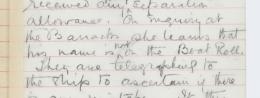 received any separation
allowance. On inquiry at
the Barracks she learns that
his name is not on the Boat Roll.
They are telegraphing to
the ships to ascertain if there